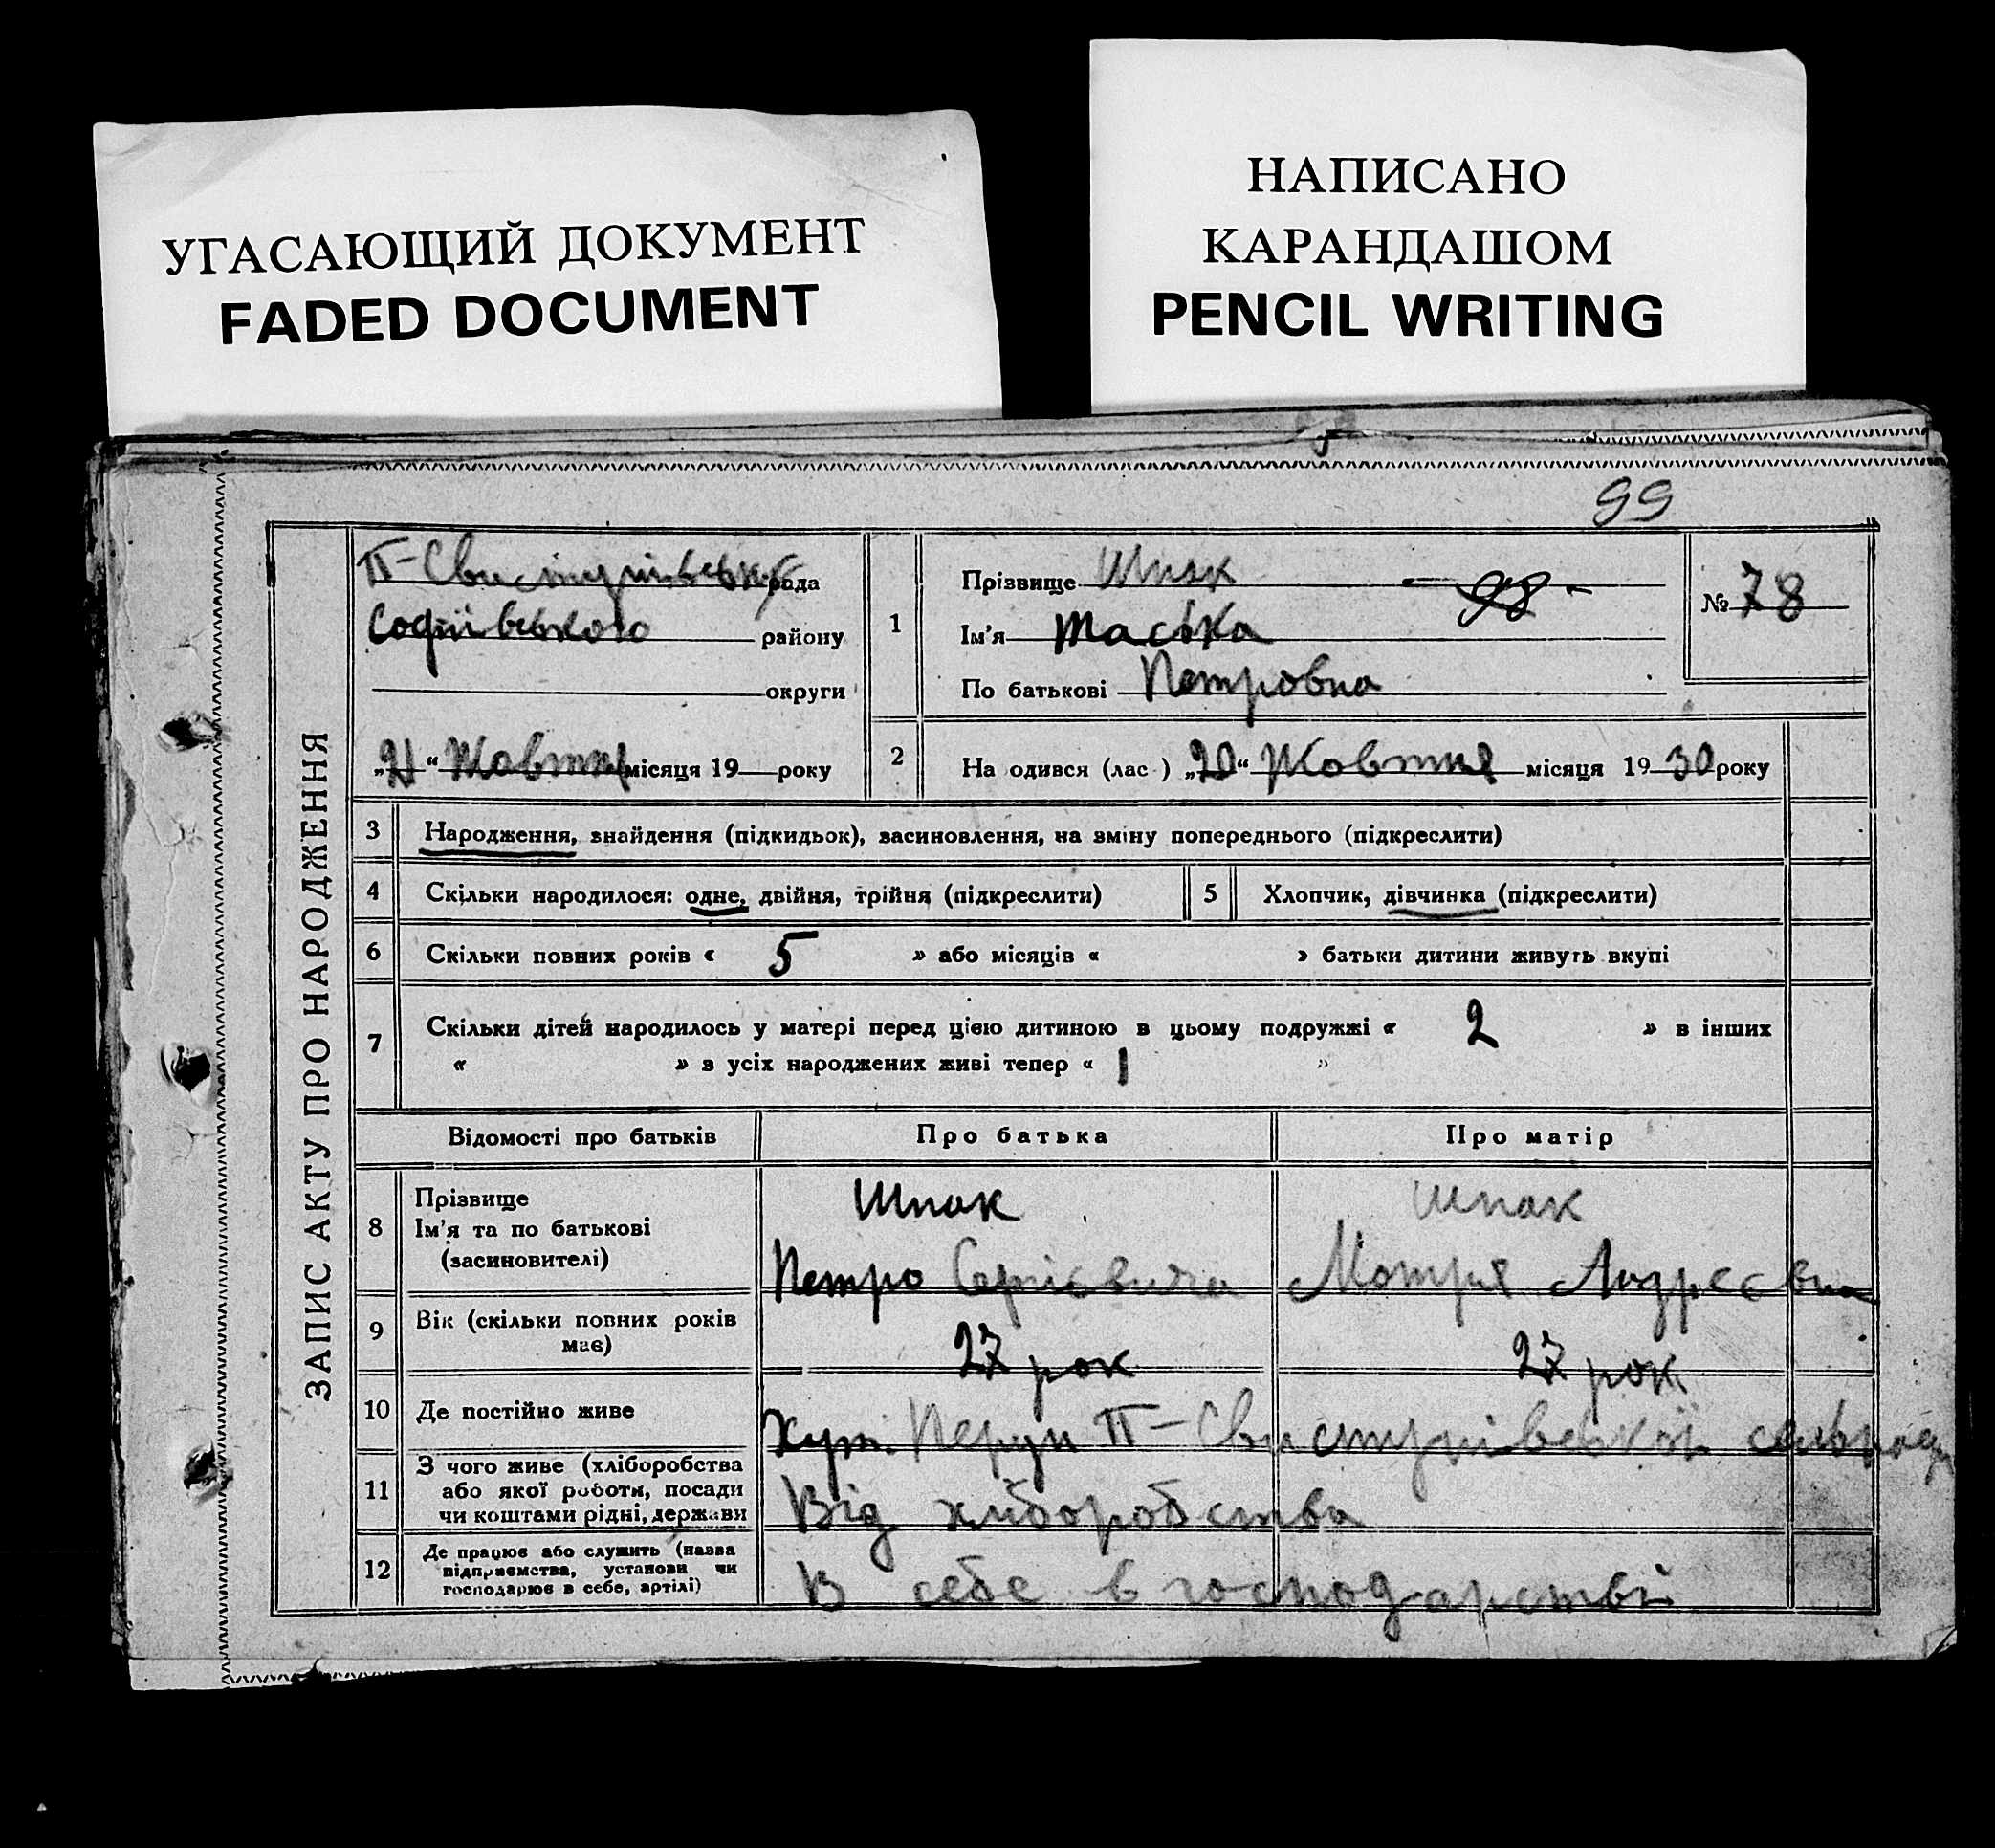 УГАСАЮЩИЙ ДОКУМЕНТ
FADED DOCUMENT
НАПИСАНО
КАРАНДАШОМ
PENCIL WRITING
99
ЗАПИС АКТУ ПРО НАРОДЖЕННЯ
П-Свистунівська рада
Софіївського району
округи
„21“ Жовтня місяця 19 року
1
Прізвище Шпак
98
Ім'я Таська
По батькові Петровна
№ 78
2 На одився (лас ) „20“ Жовтня місяця 1930 року
3 Народження, знайдення (підкидьок), засиновлення, на зміну попереднього (підкреслити)
4 Скільки народилося: одне, двійня, трійня (підкреслити) 5 Хлопчик, дівчинка (підкреслити)
6 Скільки повних років « 5 » або місяців « » батьки дитини живуть вкупі
7 Скільки дітей народилось у матері перед цією дитиною в цьому подружжі « 2 » в інших
« » з усіх народжених живі тепер « 1 »
Відомості про батьків Про батька Про матір
8 Прізвище Шпак Шпак
Ім'я та по батькові
(засиновителі) Петро Сергієвича Мотря Андреєвна
9 Вік (скільки повних років
має) 27 рок 27 рок
10 Де постійно живе Хут. П-Свистунівської сельради
11 З чого живе (хліборобства
або якої роботи, посади
чи коштами рідні, держави Від хліборобства
12 Де працює або служить (назва
підприємства, установи чи
господарює в себе, артілі) В себе в господарстві